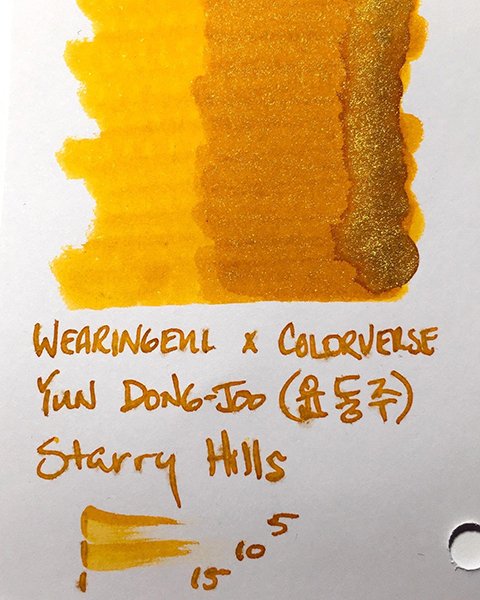 WEARINGEUL x COLORVERSE
YUN DONG-JOO (윤동주)
Starry Hills
5
10
15
1